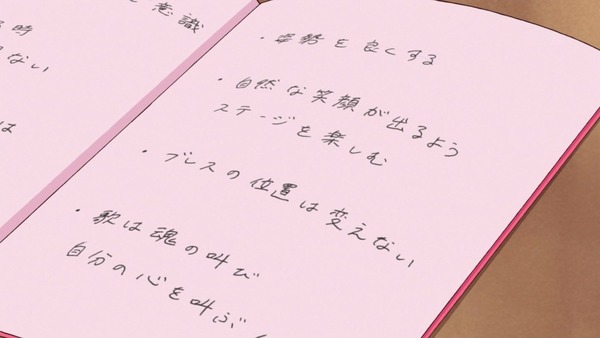 意識
時
ない
は
・姿勢を良くする
・自然な笑顔が出るよう
ステージを楽しむ
・ブレスの位置は変えない
・歌は魂の叫び
自分の心を叫ぶ